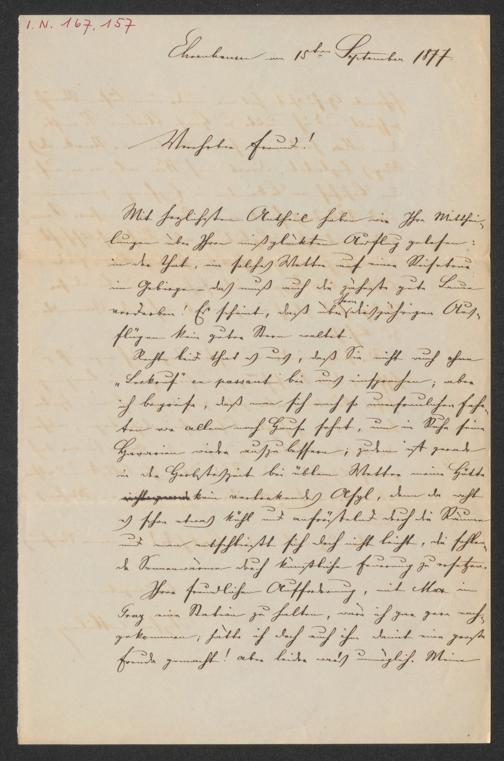 I. N. 167.157
Ehrenhausen am 15ten September 1877
Verehrter Freund!
Mit herzlichstem Antheil habe ich Ihre Mitthei-
lungen über Ihren mißglückten Ausflug gelesen:
in der That, ein solches Wetter auf einer Reise
im Gebirge das muß auch die zäheste gute Laune
verderben! Es scheint, daß über Ihren diesjährigen Aus-
flügen kein guter Stern waltet.
Recht leid that es uns, daß Sie nicht auch ohne
en passant bei uns einsprachen, aber
ich begreife, daß man sich nach so
ten vor allem nach Hause sehnt, um in Ruhe seine
wieder aufzubessern; zudem ist gerade
in der Herbsteszeit bei üblem Wetter meine Hütte
kein verlockendes Asyl, denn da geht
es schon etwas kühl und durch die Räume
und man entschließt sich doch nicht leicht, die fehlen-
de Sonnenwärme durch künstliche Feuerung zu ersetzen.
Ihrer freundlichen Aufforderung, mit Max in
Graz eine Station zu halten, wäre ich gar gern nach-
gekommen; hätte ich doch auch ihm damit eine große
Freude gemacht! aber leider war's unmöglich. Meine